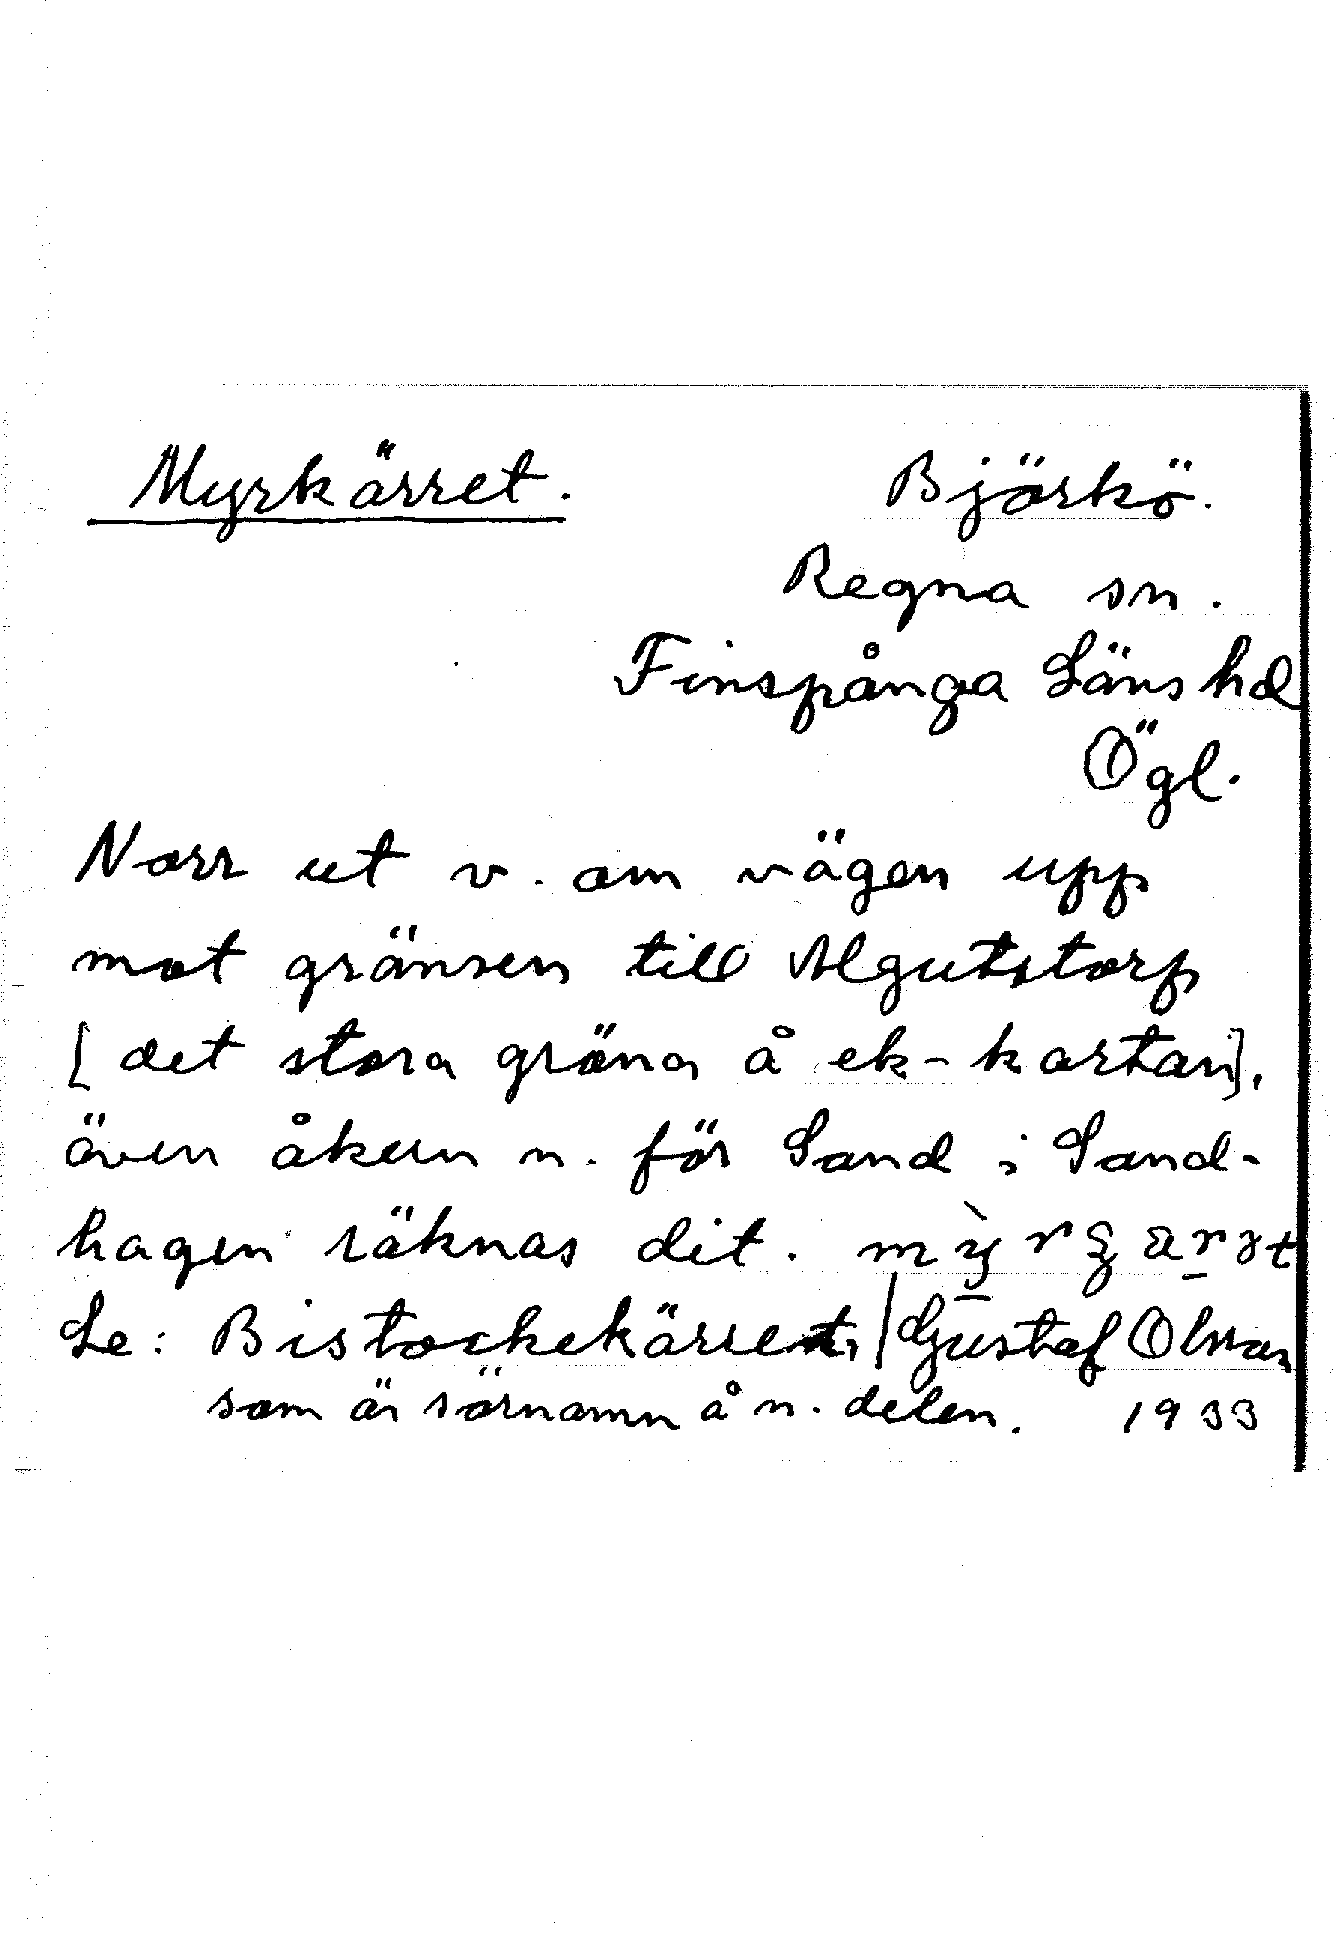 Myrkärret. Björkö.
Regna sn.
Finspånga Läns hd
Ögl.
Norr ut v. om vägen upp
mot gränsen till Algutstorp
[det stora gröna å ek-kartan],
även åkern n. för Sand i Sand-
hagen räknas dit.
Se: Bistockekärret, / Gustaf Olsson
som är särnamn å n. delen. 1933